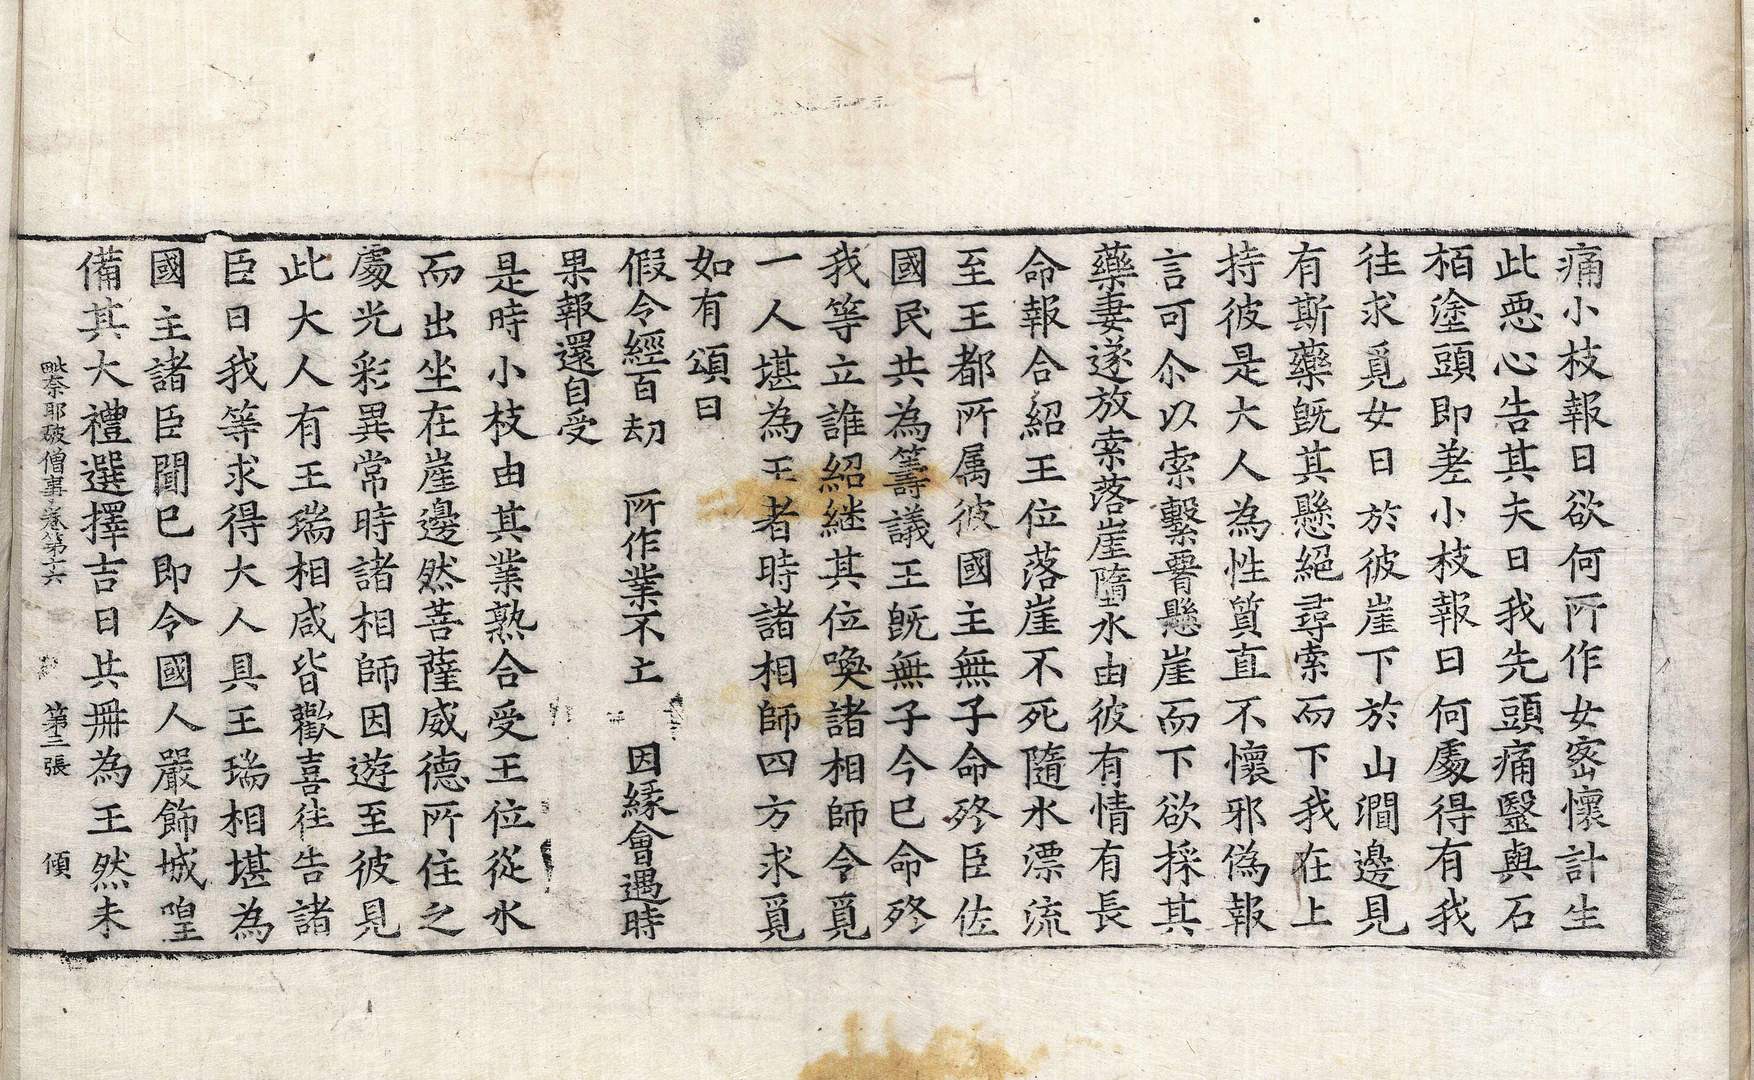 痛小枝報曰欲何所作女密懷計生
此惡心告其夫曰我先頭痛毉與石
栢塗頭即差小枝報曰何處得有我
往求覓女曰於彼崖下於山澗邊見
有斯藥旣其懸絕尋索而下我在上
持彼是大人為性質直不懷邪偽報
言可尒以索繫䁂懸崖而下欲採其
藥妻遂放索落崖墮水由彼有情有長
命報合紹王位落崖不死隨水漂流
至王都所属彼國主無子命終臣佐
國民共為籌議王旣無子今巳命終
我等立誰紹継其位喚諸相師令覓
一人堪為王者時諸相師四方求覓
如有頌曰
假令經百劫 所作業不亡 因緣會遇時
果報還自受
是時小枝由其業熟合受王位從水
而出坐在崖邊然菩薩威德所住之
處光彩異常時諸相師因遊至彼見
此大人有王瑞相咸皆歡喜往告諸
臣曰我等求得大人具王瑞相堪為
國主諸臣聞巳即令國人嚴飾城隍
備其大禮選擇吉日共冊為王然未
毗奈耶破僧事卷第十六 第三張 傾